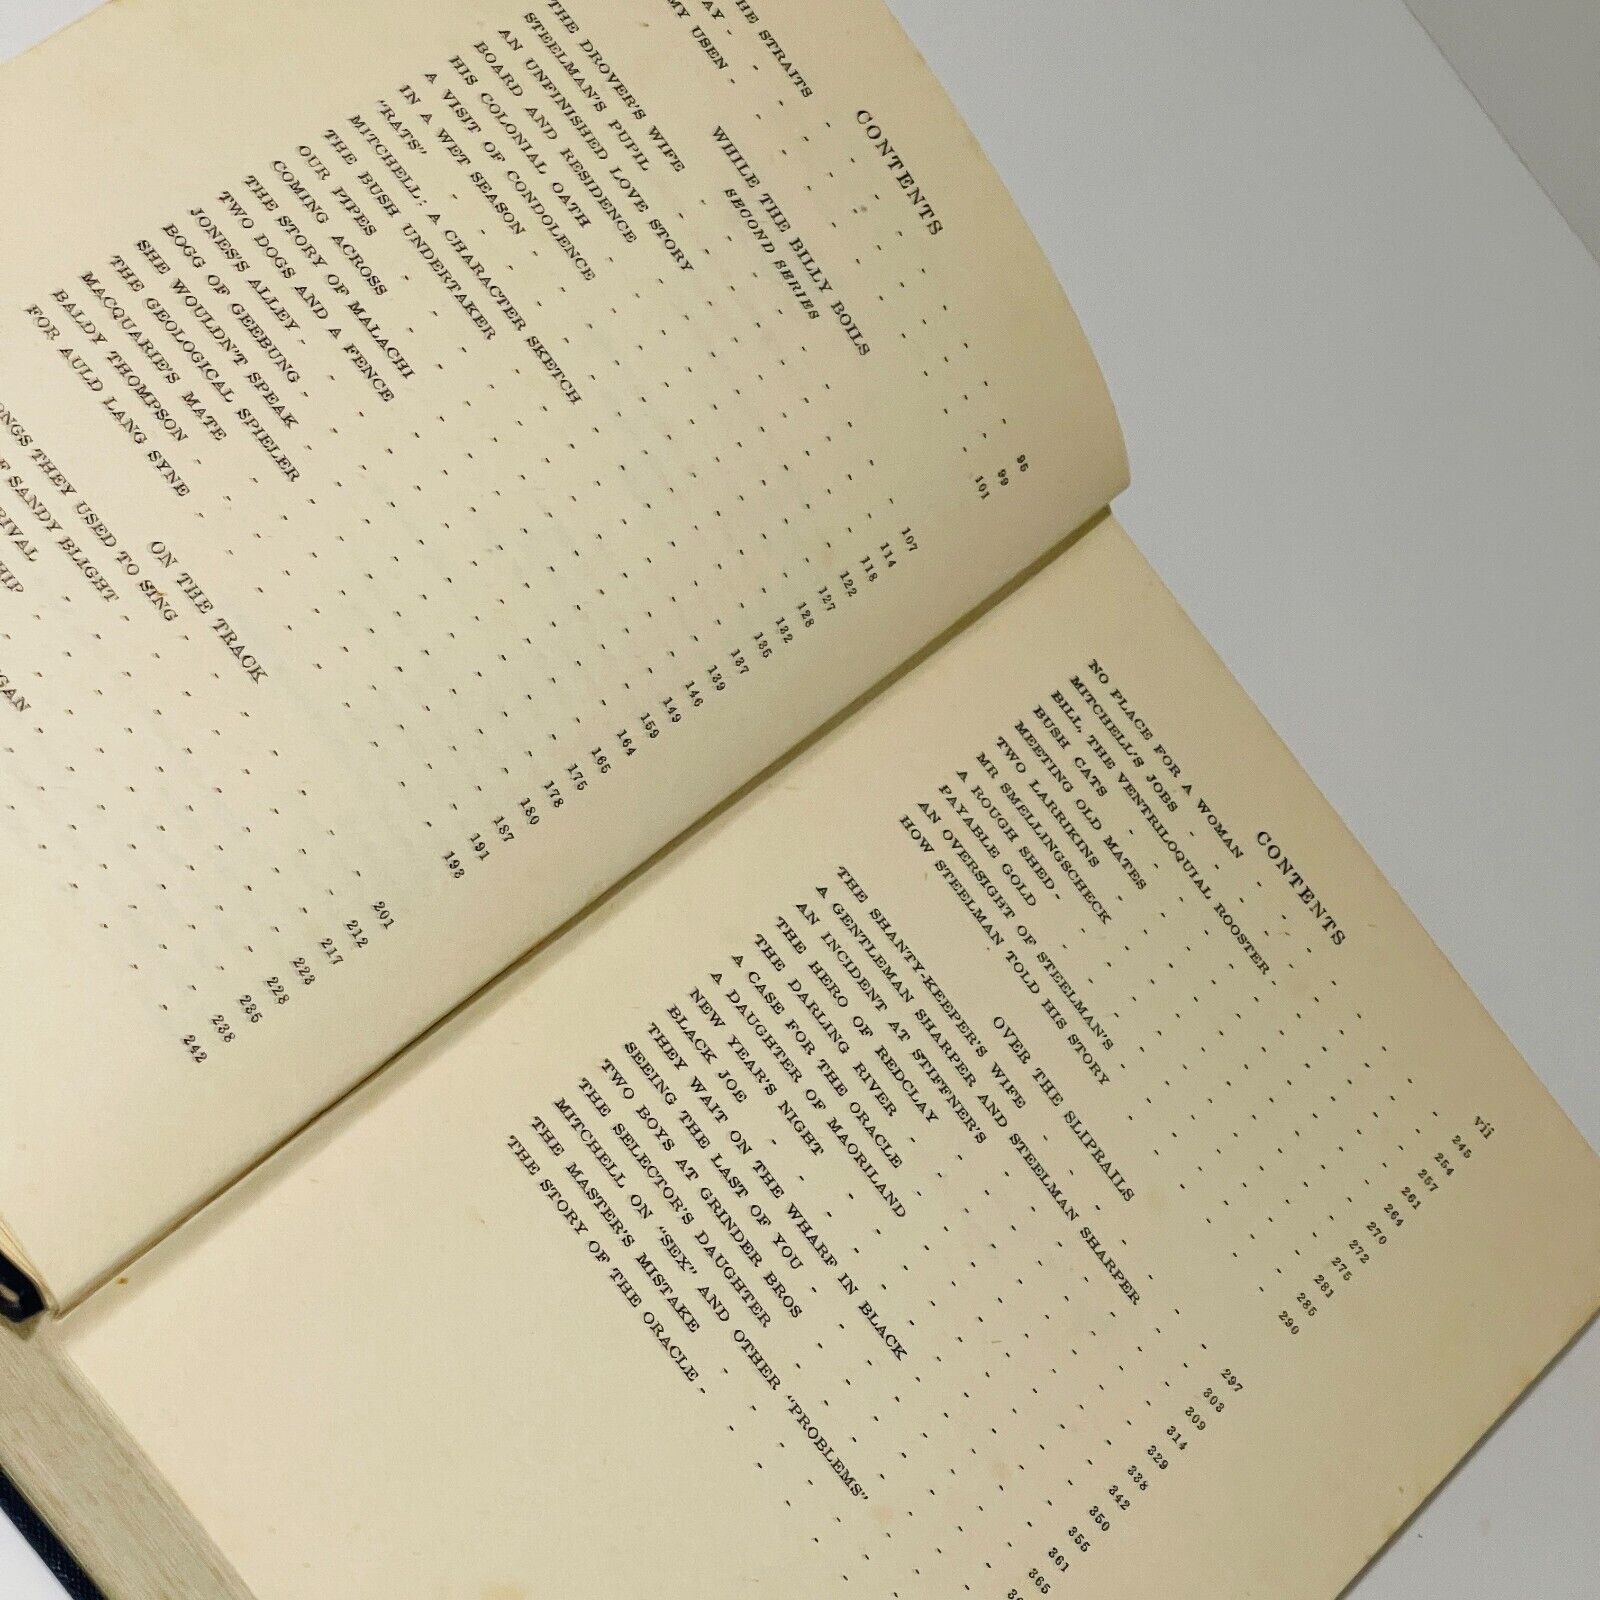 CONTENTS
HE STRAITS - 95
AY - 99
MY USEN - 101
WHILE THE BILLY BOILS
SECOND SERIES
THE DROVER'S WIFE - 107
STEELMAN'S PUPIL - 114
AN UNFINISHED LOVE STORY - 118
BOARD AND RESIDENCE - 122
HIS COLONIAL OATH - 127
A VISIT OF CONDOLENCE - 128
IN A WET SEASON - 132
"RATS" - 135
MITCHELL: A CHARACTER SKETCH - 137
THE BUSH UNDERTAKER - 139
OUR PIPES - 146
COMING ACROSS - 149
THE STORY OF MALACHI - 159
TWO DOGS AND A FENCE - 164
JONES'S ALLEY - 165
BOGG OF GEEBUNG - 175
SHE WOULDN'T SPEAK - 178
THE GEOLOGICAL SPIELER - 180
MACQUARIE'S MATE - 187
BALDY THOMPSON - 191
FOR AULD LANG SYNE - 193
ON THE TRACK
ONGS THEY USED TO SING - 201
F SANDY BLIGHT - 212
RIVAL - 217
HIP - 223
228
GAN - 235
238
242
vii
CONTENTS
NO PLACE FOR A WOMAN - 245
MITCHELL'S JOBS - 254
BILL, THE VENTRILOQUIAL ROOSTER - 257
BUSH CATS - 261
MEETING OLD MATES - 264
TWO LARRIKINS - 270
MR SMELLINGSCHECK - 272
A ROUGH SHED - 275
PAYABLE GOLD - 281
AN OVERSIGHT OF STEELMAN'S - 285
HOW STEELMAN TOLD HIS STORY - 290
OVER THE SLIPRAILS
THE SHANTY-KEEPER'S WIFE - 297
A GENTLEMAN SHARPER AND STEELMAN SHARPER - 303
AN INCIDENT AT STIFFNER'S - 309
THE HERO OF REDCLAY - 314
THE DARLING RIVER - 329
A CASE FOR THE ORACLE - 338
A DAUGHTER OF MAORILAND - 342
NEW YEAR'S NIGHT - 350
BLACK JOE - 355
THEY WAIT ON THE WHARF IN BLACK - 361
SEEING THE LAST OF YOU - 365
TWO BOYS AT GRINDER BROS
THE SELECTOR'S DAUGHTER
MITCHELL ON "SEX" AND OTHER "PROBLEMS"
THE MASTER'S MISTAKE
THE STORY OF THE ORACLE